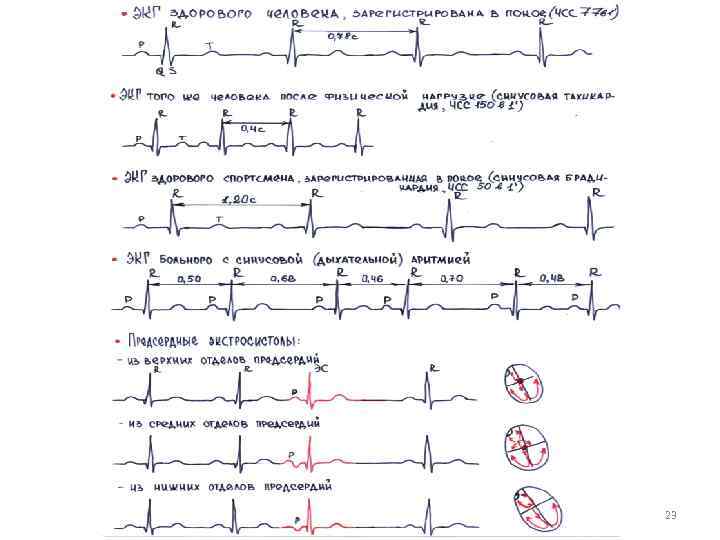 • ЭКГ ЗДОРОВОГО ЧЕЛОВЕКА, ЗАРЕГИСТРИРОВАНА В ПОКОЕ (ЧСС 77 в 1')
R R R R
0,78с
P T
Q S
• ЭКГ ТОГО ЖЕ ЧЕЛОВЕКА ПОСЛЕ ФИЗИЧЕСКОЙ НАГРУЗКЕ (СИНУСОВАЯ ТАХИКАР-
ДИЯ, ЧСС 150 в 1')
R R R R
0,4с
P T
• ЭКГ ЗДОРОВОГО СПОРТСМЕНА, ЗАРЕГИСТРИРОВАННАЯ В ПОКОЕ (СИНУСОВАЯ БРАДИ-
КАРДИЯ, ЧСС 50 в 1')
R R R R
1,20с
P T
• ЭКГ БОЛЬНОГО С СИНУСОВОЙ (ДЫХАТЕЛЬНОЙ) АРИТМИЕЙ
R R R R R R
0,50 0,68 0,46 0,70 0,48
P P P P P P
• Предсердные экстросистолы:
- ИЗ ВЕРХНИХ ОТДЕЛОВ ПРЕДСЕРДИЙ
R R ЭС R
P
- ИЗ СРЕДНИХ ОТДЕЛОВ ПРЕДСЕРДИЙ
P
- ИЗ НИЖНИХ ОТДЕЛОВ ПРЕДСЕРДИЙ
P
23